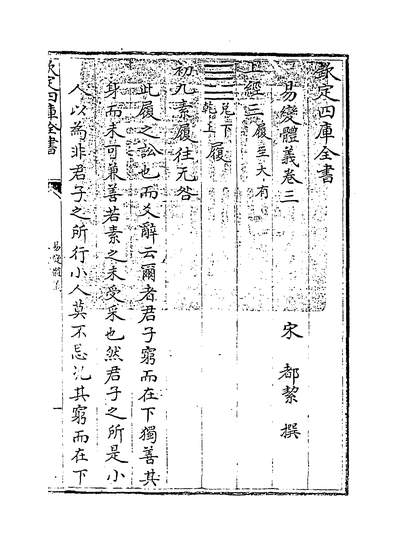 欽定四庫全書
易變體義卷三
宋 都絜 撰
上經三 履至大有
兌下
乾上
履
初九素履往无咎
此履之訟也而爻辭云爾者君子窮而在下獨善其
身而未可兼善若素之未受采也然君子之所是小
人以為非君子之所行小人莫不忌況其窮而在下
欽定四庫全書
易變體義
一